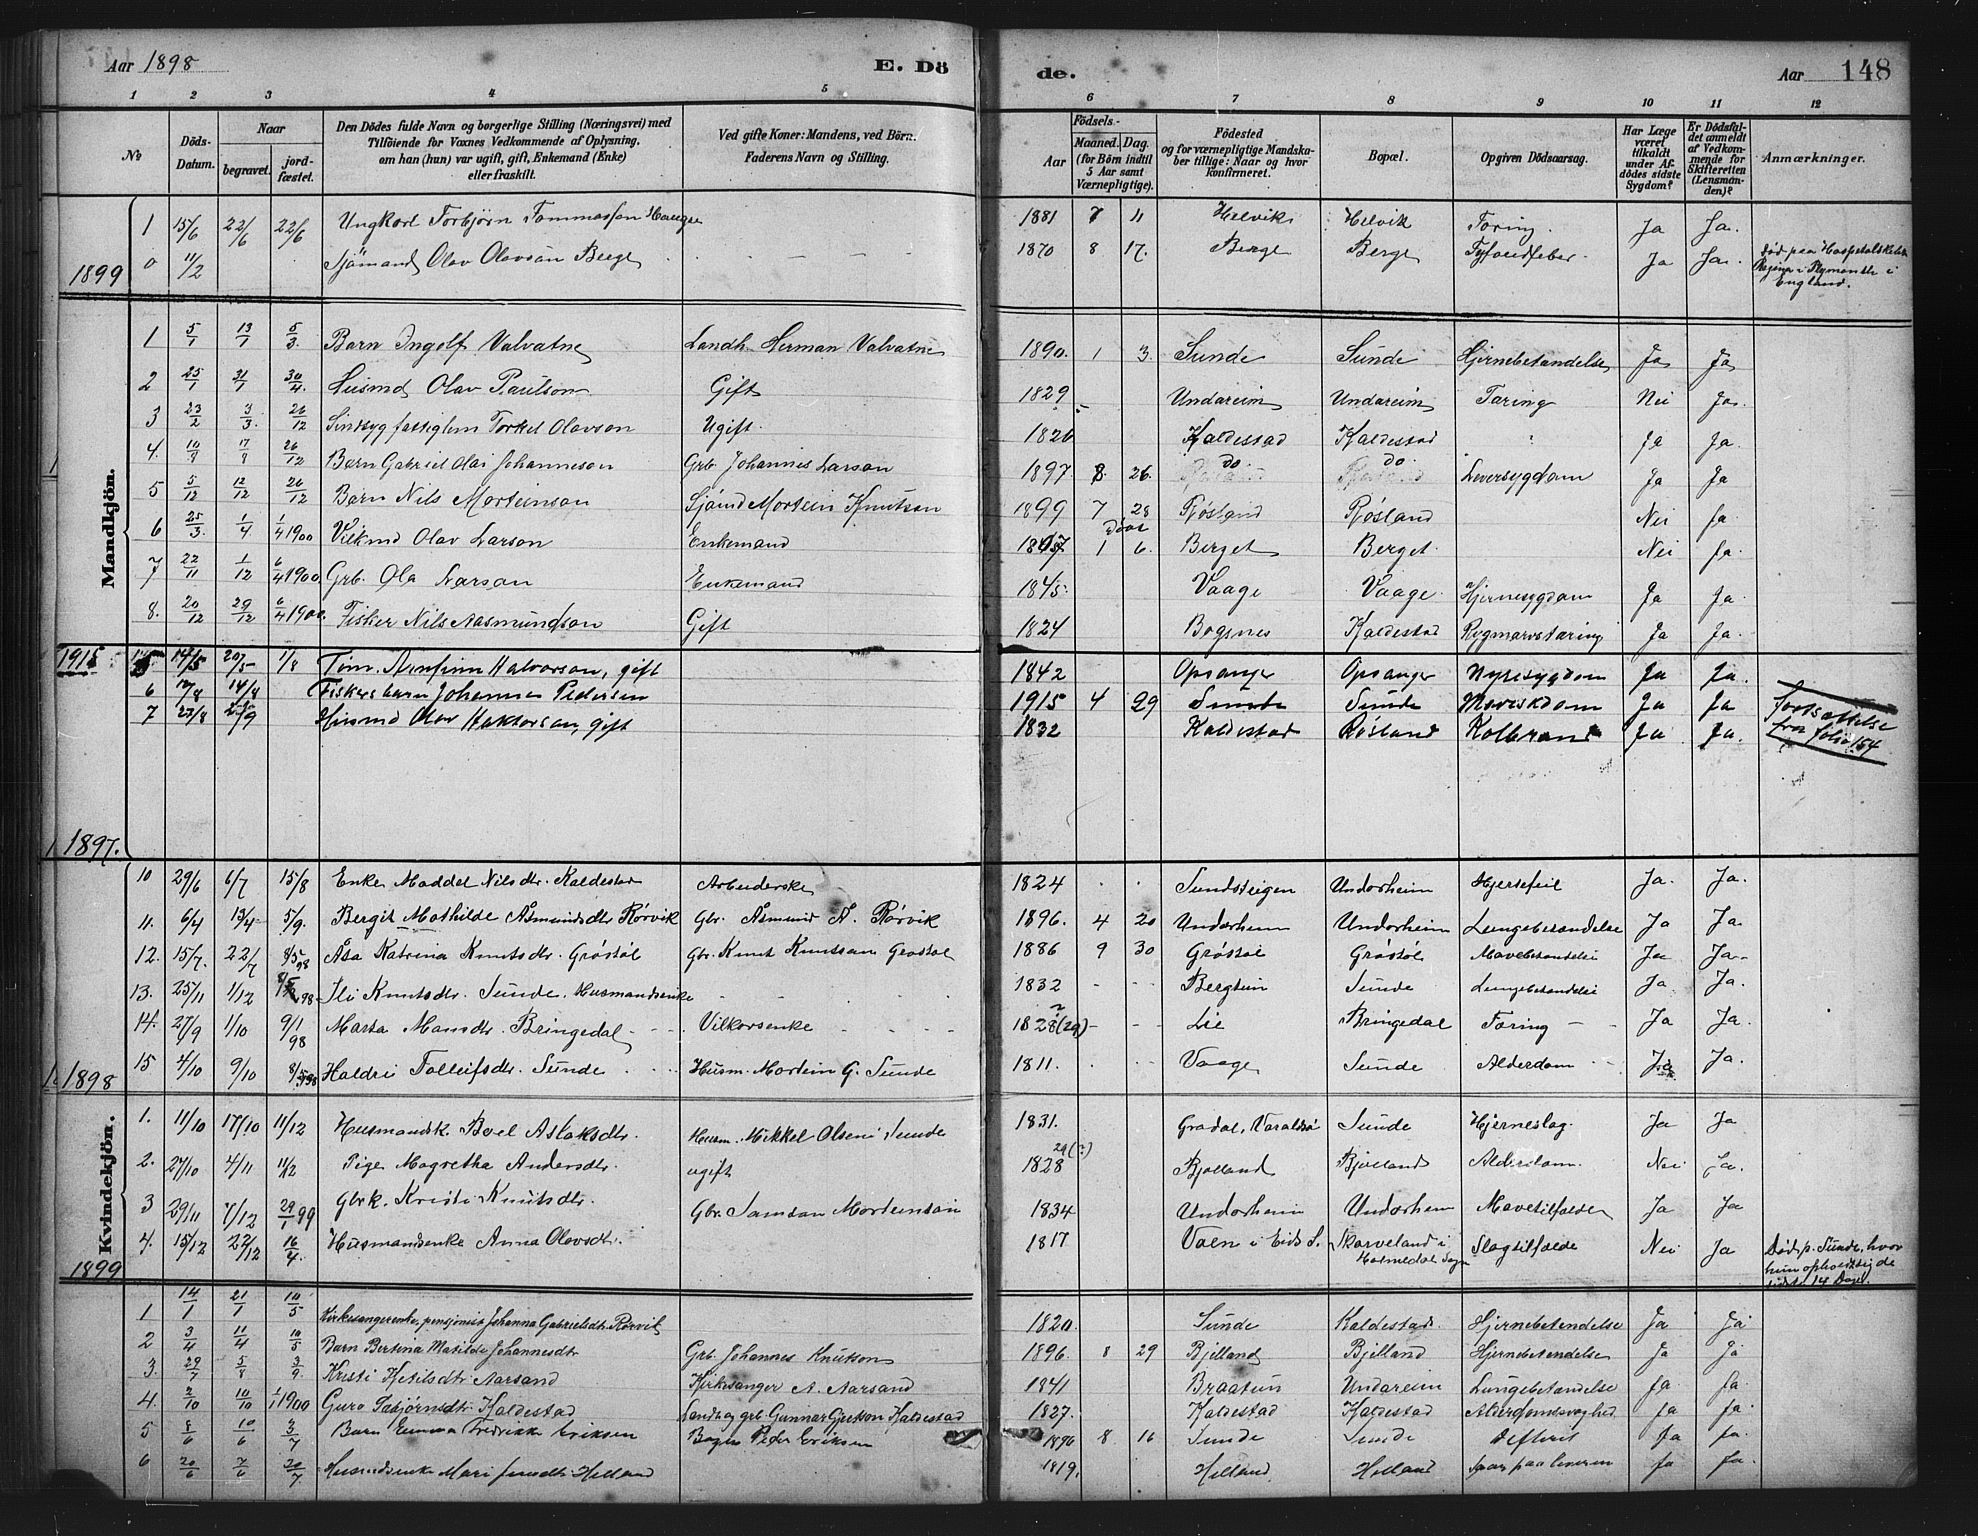 Aar 1898 E. Dö de. Aar 148
1 2 3 4 5 6 7 8 9 10 11 12
No Döds-Datum. Naar begravet. jordfæstet. Den Dödes fulde Navn og borgerlige Stilling (Næringsvei) med Tilföiende for Voxnes Vedkommende af Oplysning, om han (hun) var ugift, gift, Enkemand (Enke) eller fraskilt. Ved gifte Koner: Mandens, ved Börn: Faderens Navn og Stilling. Födsels- Aar Maaned. Dag. (for Börn indtil 5 Aar samt Værnepligtige). Födested og for værnepligtige Mandskaber tillige: Naar og hvor konfirmeret. Bopæl. Opgiven Dödsaarsag. Har Læge været tilkaldt under Afdödes sidste Sygdom? Er Dödsfaldet anmeldt af Vedkommende for Skifteretten (Lensmanden)? Anmærkninger.
1 15/6 22/6 22/6 Ungkarl Torbjørn Tommassen Haugen 1881 7 11 Helvik Helvik Tæring. Ja Ja.
0 11/2 Sjømand Olav Olavson Berge 1870 8 17. Berge Berge Tyfoidfeber Ja Ja. Død paa Hospitalskibet Regina i Plymouth i England.
1899
Mandkjön.
1 5/1 13/1 5/3. Barn Ingolf Valvatne Landh. Herman Valvatne 1890. 1 3. Sunde Sunde Hjernebetændelse Ja Ja
2 25/1 31/1 30/4. Husmd Olav Paulson Gift 1829 Undareim Undareim Tæring Nei Ja.
3 23/2 3/3. 26/12 Sindsyg fattiglem Torkel Olavson Ugift. 1826 Kaldestad Kaldestad " Ja Ja.
4. 10/9 17/9 26/12 Barn Gabriel Olai Johanneson Grb. Johannes Larson 1897 8 26. do. do. Leversygdom Ja Ja
5 5/12 12/12 26/12 Barn Nils Morteinson Sjømd Mortein Knutson 1899 7 28 Røsland Røsland Nei Ja.
6 25/3. 1/4 1/4 1900 Vilkmd Olav Larson Enkemand 1 6. Berget Berget. Nei Ja.
7 22/11 1/12 6/4 1900. Grb. Ola Larson Enkemand 1845. Vaage Vaage Hjernesygdom Ja Ja.
8. 20/12 29/12 6/4 1900. Fisker Nils Aasmundson Gift 1824 Bogsnes Kaldestad Rygmarvstæring Ja Ja.
1915 5 14/5 20/5 1/8 Tøm. Arnfinn Halvorson, gift 1842 Opsanger Opsanger Nyresygdom Ja Ja.
6 12/8 14/8 Fiskers barn Johannes Pedersen 1915 4 29 Sunde Sunde Ja Ja.
7 23/8 2/9 Husmd Olav Haktorson, gift 1832 Kaldestad Røsland Kolbrand Ja Ja. Fortsættelse fra folio 154
1897.
10 29/6 6/7 15/8 Enke Maddel Nilsdtr. Kaldestad Arbeiderske 1824 Sundsteigen Undarheim Hjertefeil Ja. Ja.
11. 6/4 13/4 5/9. Bergit Mathilde Åsmundsdtr Rørvik Gbr. Åsmund A. Rørvik 1896. 4 20 Undarheim Undarheim Lungebetændelse Ja Ja.
12. 15/7. 22/7 8/5 98 Åsa Katrina Knutsdtr. Grøstøl Gbr. Knut Knutsson Grøstøl 1886 9 30 Grøstøl Grøstøl Mavebetændelse Ja Ja.
13. 25/11 1/12 8/5 98 Ili Knutsdtr. Sunde. Husmandsenke 1832 Bergtun Sunde Lungebetændelse Ja. Ja.
14. 27/9 1/10 9/1 98 Marta Monsdtr. Bringedal Vilkorsenke 1828 (29) ? Lie Bringedal Tæring Ja Ja.
15 4/10 9/10 8/5 98 Haldri Tolleifsdtr. Sunde Husm. Mortein G. Sunde 1811. Vaage Sunde Alderdom Ja Ja.
1898
Kvindekjön.
1. 11/10 17/10 11/12 Husmandsk. Boel Aslaksdtr. Husm. Mikkel Olsen i Sunde 1831. Gradal, Varaldsø Sunde Hjerneslag. Ja Ja
2. 27/10 4/11 11/2 Pige Magretha Andersdtr. ugift 1828 29(?) Bjelland Bjelland Alderdom. Nei Ja.
3 29/11 7/12 29/1 99 Gbrk. Kristi Knutsdtr. Gbr. Samson Morteinson 1834 Undarheim Undarheim Mavetilfælde Ja Ja
4. 15/12 22/12 16/4. Husmandsenke Anna Olavsdtr. 1817 Vaen i Eids S. Skarveland i Holmedal Sogn Slagtilfælde Nei Ja Død p. Sunde, hvor hun opholdt sig de sidste 14 Dage.
1899
1 14/1 21/1 10/5 Kirkesangerenke, pensjonist Johanna Gabrielsdtr. Rørvik 1820. Sunde Kaldestad. Hjernebetændelse Ja Ja
2 3/4 11/4 10/5 Barn Bertina Matilde Johannesdtr Grb. Johannes Knutson 1896. 8 29 Bjelland Bjelland Hjernebetændelse Ja Ja
3. 29/7 5/8 3/9. Kristi Ketilsdtr Aarsand Kirkesanger A. Aarsand 1841 Braatun Undareim Lungebetændelse Ja Ja.
4. 2/10 10/10 1/1 1900 Guro Torbjörnsdtr Kaldestad Landh. og grb. Gunnar Gjertson Kaldestad 1827. Kaldestad Kaldestad Alderdomssvaghed Ja Ja.
5 8/6 10/6 3/7 Barn Emma Fredrikke Eriksen Bager Peder Eriksen 1896 8 16 Sunde Sunde Difterit Ja Ja.
6 20/6 7/6 20/7. Husmdsenke Mari Jensdtr. Helland 1819. Helland Helland Saar paa leveren Ja Ja.